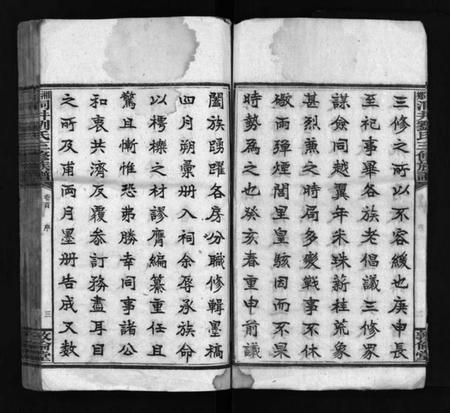 三修之所以不容緩也庚申長
至祀事畢各族老倡議三修衆
謀僉同越翼年米珠薪桂荒象
甚烈兼之時局多變戰事不休
礮雨彈煙閭里皇駭因而不果
時勢爲之也癸亥春重申前議
闔族踴躍各房分職修輯墨稿
四月朔彙册入祠余辱承族命
以樗櫟之材謬膺編纂重任且
驚且慚惟恐弗勝幸同事諸公
和衷共濟反覆叅訂務盡耳目
之所及甫兩月墨册告成又数
洞井劉氏三修族譜
卷首 序
三
敦倫堂